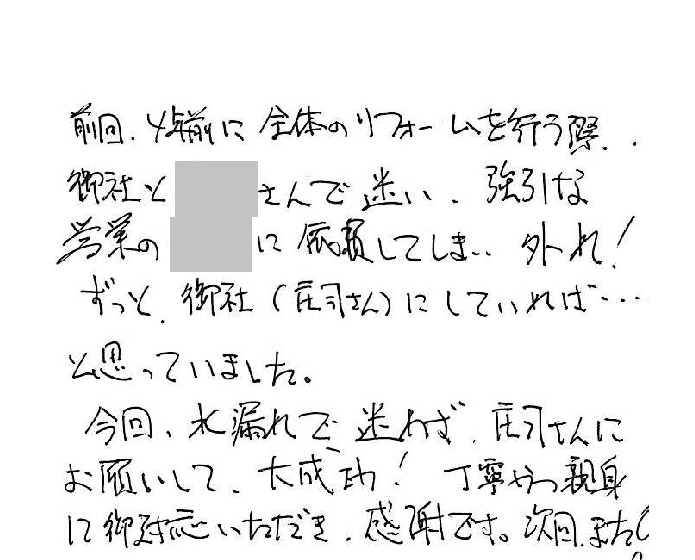 前回、4年前に全体のリフォームを行う際、
御社と さんで迷い、強引な
営業の に依頼してしまい 外れ!
ずっと、御社(庄司さん)にしていれば・・・
と思っていました。
今回、水漏れで、迷わず、庄司さんに
お願いして、大成功! 丁寧かつ親身
に御対応いただき、感謝です。次回、また